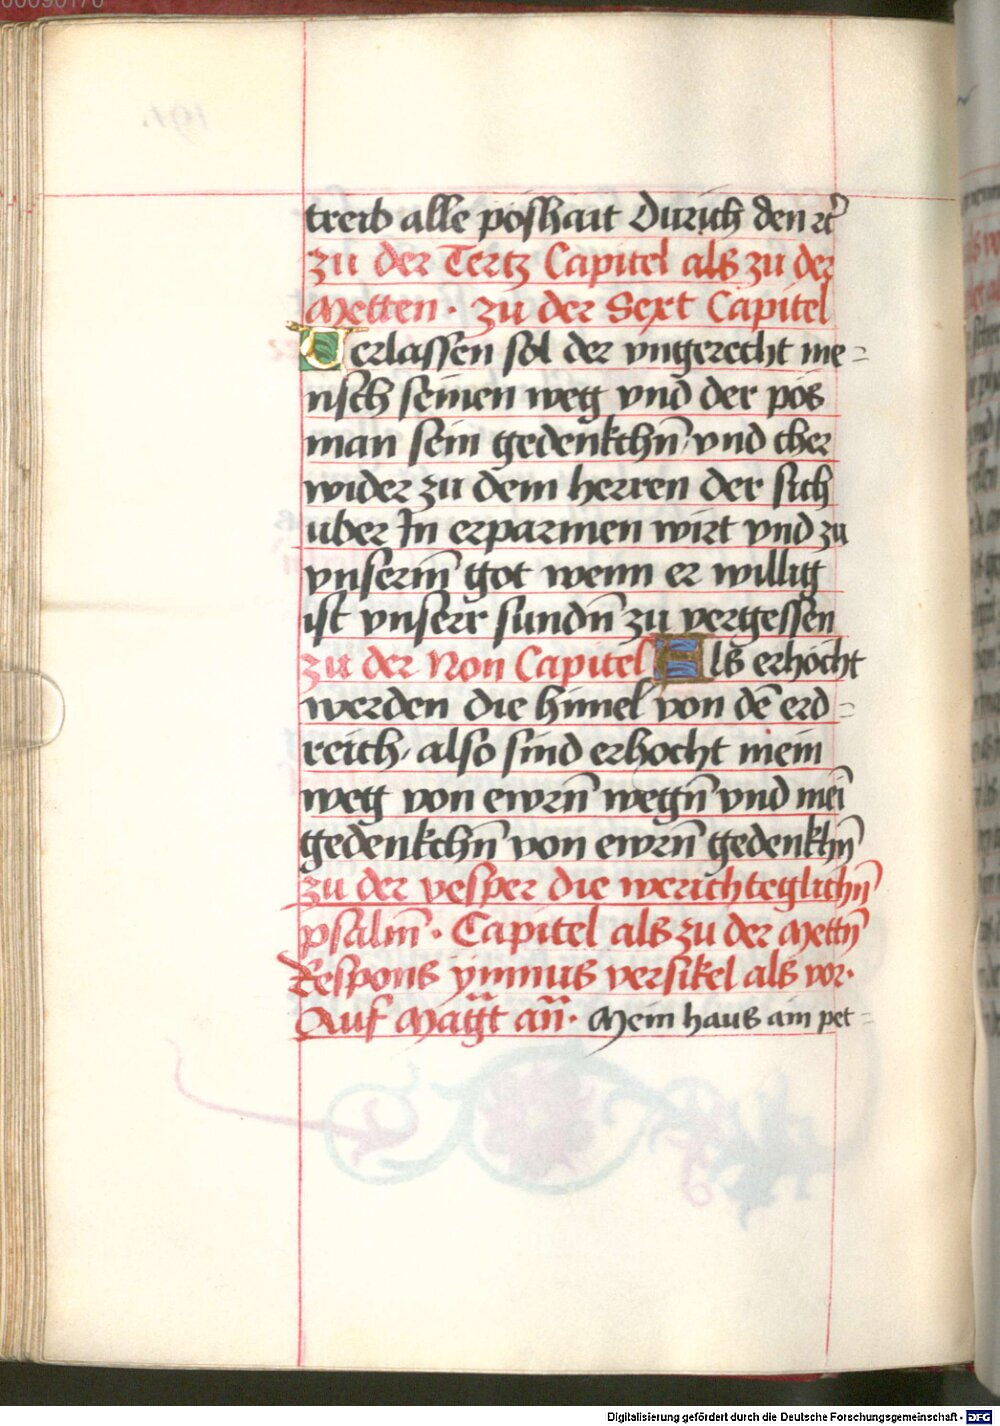 treib alle poshait Durich den rc
zu der Tertz Capitel als zu der
Metten · zu der Sext Capitel
Verlassen sol der vngerecht me=
nsch seinen weg vnd der pos
man sein gedenkchn̄ vnd cher
wider zu dem herren der sich
uber In erparmen wirt vnd zu
vnserm̄ got wenn er willig
ist vnserr sundn̄ zu vergessen
zu der Non Capitel Als erhocht
werden die himel von dē erd=
reich, also sind erhocht mein
weg von ewrn̄ wegn̄ vnd mei̅
gedenkchn̄ von ewrn̄ gedenkhn̄
zu der vesper die werichteglichn̄
psalm̄ · Capitel als zu der Mettn̄
Respons ymnus versikel als vor·
Auf Magt̄ an̄· Mein haus ain pet=
Digitalisierung gefördert durch die Deutsche Forschungsgemeinschaft - DFG